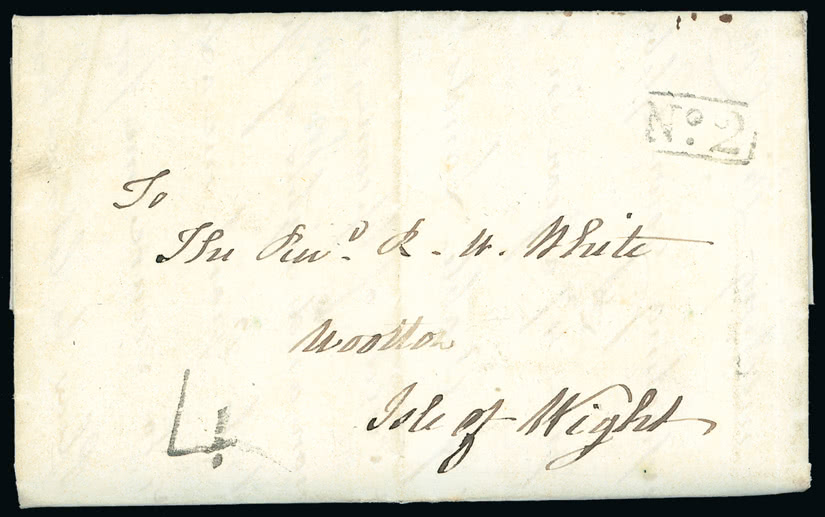 No: 2
To
The Revd. R. W. White
Wootton
Isle of Wight
4